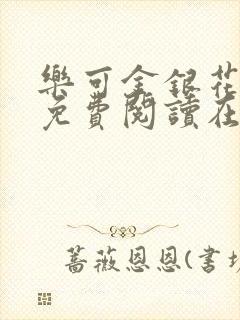 樂可金銀花
免費閱讀在
薔薇恩恩(書坊